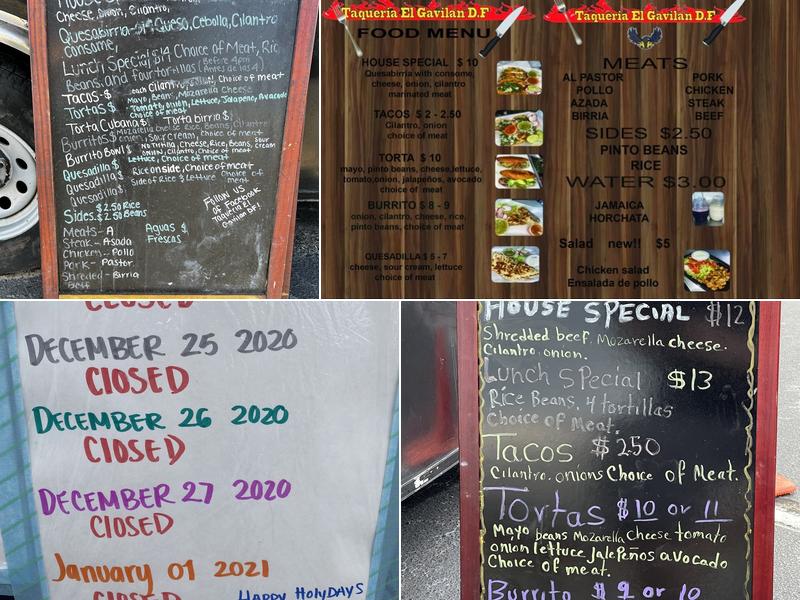 Cheese, Onion, Cilantro,
Quesabirria of Queso, Cebolla, Cilantro
consome,
Lunch Special $14 Choice of Meat, Ric
Beans, and four tortillas (Before 4pm)
(Antes de las 4)
Tacos-$ each Cilantro, Choice of meat
Tortas $ Mayo, Beans, Mozarella Cheese
Tomato, onion, Lettuce, Jalapeno, Avocado
Choice of meat
Torta Cubana $ Torta birria $
Burritos $ Mozarella Cheese Rice, Beans, Cilantro
onion, Sour cream, Choice of meat
Burrito Bowl $ No Tortilla, Cheese, Rice, Beans, Sour cream
onion, Cilantro, Choice of meat
Quesadilla $ Lettuce, Choice of meat
Quesadilla $ Rice on side, Choice of meat
Quesadilla $ Side of Rice & Lettuce Choice of meat
Sides. $2.50 Rice
$2.50 Beans
Follow us
of Facebook
Taqueria El
Gavilan DF!
Meats - A
Steak - Asada
Chicken - Pollo
Pork - Pastor
Shreded - Birria
Beff
Aguas $
Frescas
Taqueria El Gavilan D.F
FOOD MENU
HOUSE SPECIAL $ 10
Quesabirria with consome,
cheese, onion, cilantro
marinated meat
TACOS $ 2 - 2.50
Cilantro, onion
choice of meat
TORTA $ 10
mayo, pinto beans, cheese,letuce,
tomato,onion, jalapeños, avocado
choice of meat
BURRITO $ 8 - 9
onion, cilantro, cheese, rice,
pinto beans, choice of meat
QUESADILLA $ 5 - 7
cheese, sour cream, lettuce
choice of meat
Taqueria El Gavilan D.F
MEATS
AL PASTOR PORK
POLLO CHICKEN
AZADA STEAK
BIRRIA BEEF
SIDES $2.50
PINTO BEANS
RICE
WATER $3.00
JAMAICA
HORCHATA
Salad new!! $5
Chicken salad
Ensalada de pollo
CLOSED
DECEMBER 25 2020
CLOSED
DECEMBER 26 2020
CLOSED
DECEMBER 27 2020
CLOSED
January 01 2021
CLOSED
HAPPY HolyDAYS
HOUSE SPECIAL $12
Shredded beef. Mozarella cheese.
Cilantro. onion.
Lunch Special $13
Rice Beans. 4 tortillas
Choice of Meat.
Tacos $ 250
Cilantro. onions Choice of Meat.
Tortas $ 10 or 11
Mayo beans Mozarella cheese tomato
onion lettuce jalePeños avocado
Choice of meat.
Burrito $ 9 or 10